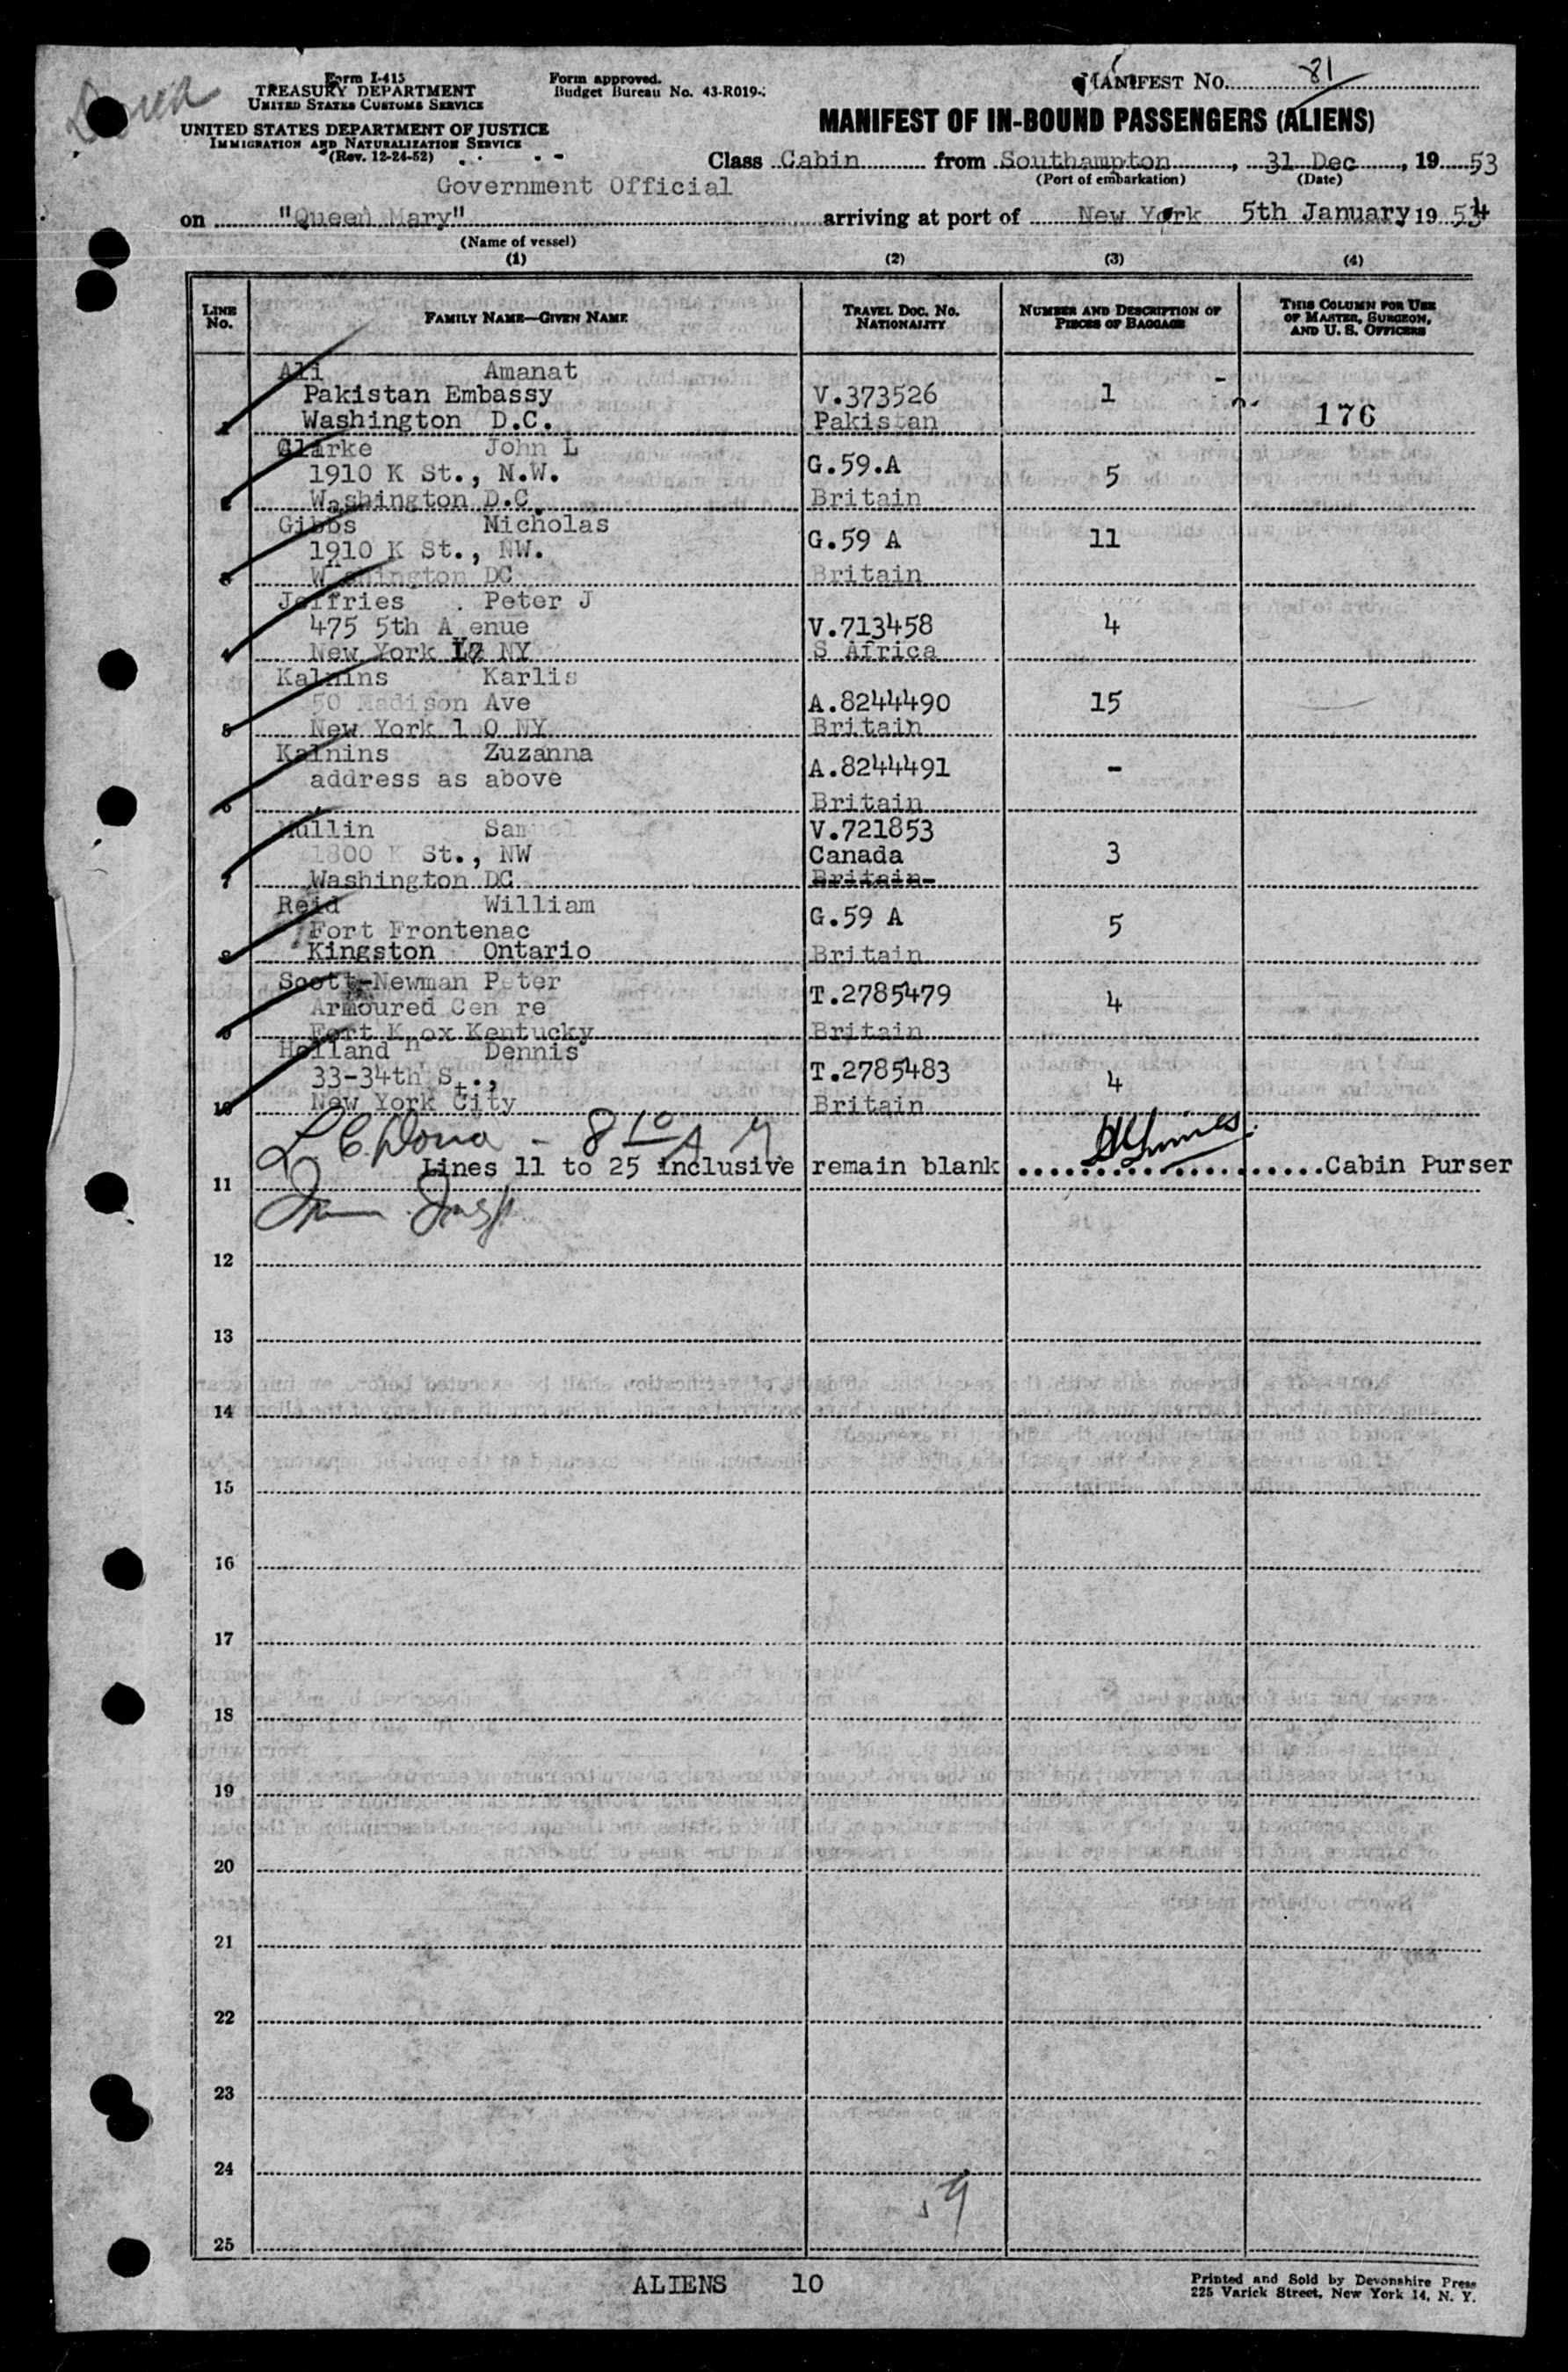 Form I-415
TREASURY DEPARTMENT
UNITED STATES CUSTOMS SERVICE
UNITED STATES DEPARTMENT OF JUSTICE
IMMIGRATION AND NATURALIZATION SERVICE
(Rev. 12-24-52)
Form approved.
Budget Bureau No. 43-R019-
MANIFEST No. 81
MANIFEST OF IN-BOUND PASSENGERS (ALIENS)
Class Cabin from Southampton, 31 Dec, 19 53
(Port of embarkation) (Date)
Government Official
on "Queen Mary" arriving at port of New York 5th January 19 54
(Name of vessel)
(1) (2) (3) (4)
LINE No. FAMILY NAME—GIVEN NAME TRAVEL DOC. NO. NATIONALITY NUMBER AND DESCRIPTION OF PIECES OF BAGGAGE THIS COLUMN FOR USE OF MASTER, SURGEON, AND U. S. OFFICERS
Ali Amanat
Pakistan Embassy V.373526 1
1 Washington D.C. Pakistan 176
Clarke John L
1910 K St., N.W. G.59.A 5
2 Washington D.C. Britain
Gibbs Nicholas
1910 K St., NW. G.59 A 11
3 Washington DC Britain
Jeffries Peter J
475 5th A enue V.713458 4
4 New York NY S Africa
Kalnins Karlis
50 Madison Ave A.8244490 15
5 New York 1 0 NY Britain
Kalnins Zuzanna
address as above A.8244491 -
6 Britain
Mullin Samuel V.721853
1800 K St., NW Canada 3
7 Washington DC Britain
Reid William
Fort Frontenac G.59 A 5
8 Kingston Ontario Britain
Scott-Newman Peter
Armoured Cen re T.2785479 4
9 Fort K ox Kentucky Britain
Holland n Dennis
33-34th St., T.2785483 4
10 New York City Britain
Lines 11 to 25 inclusive remain blank ....................Cabin Purser
11
12
13
14
15
16
17
18
19
20
21
22
23
24
25
ALIENS 10
Printed and Sold by Devonshire Press
225 Varick Street, New York 14, N. Y.